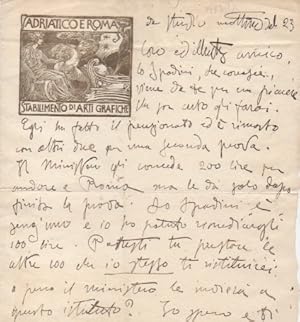 ADRIATICO E ROMA
STABILIMENTO DI ARTI GRAFICHE
da studio mattina del 23
caro ed illustre amico,
lo Spadini, che conosci,
viene da te per un piacere
che son certo gli farai.
Egli ha fatto il pensionato ed è rimasto
con altri due per una seconda prova.
Il Ministero gli concede 200 lire per
andare a Roma ma le dà solo dopo
finita la prova. Lo Spadini è
e io ho potuto
100 lire. Potresti tu prestare le
altre 100 che io stesso ti restituirei
o pure il ministero le
questo istituto? Io spero e ti